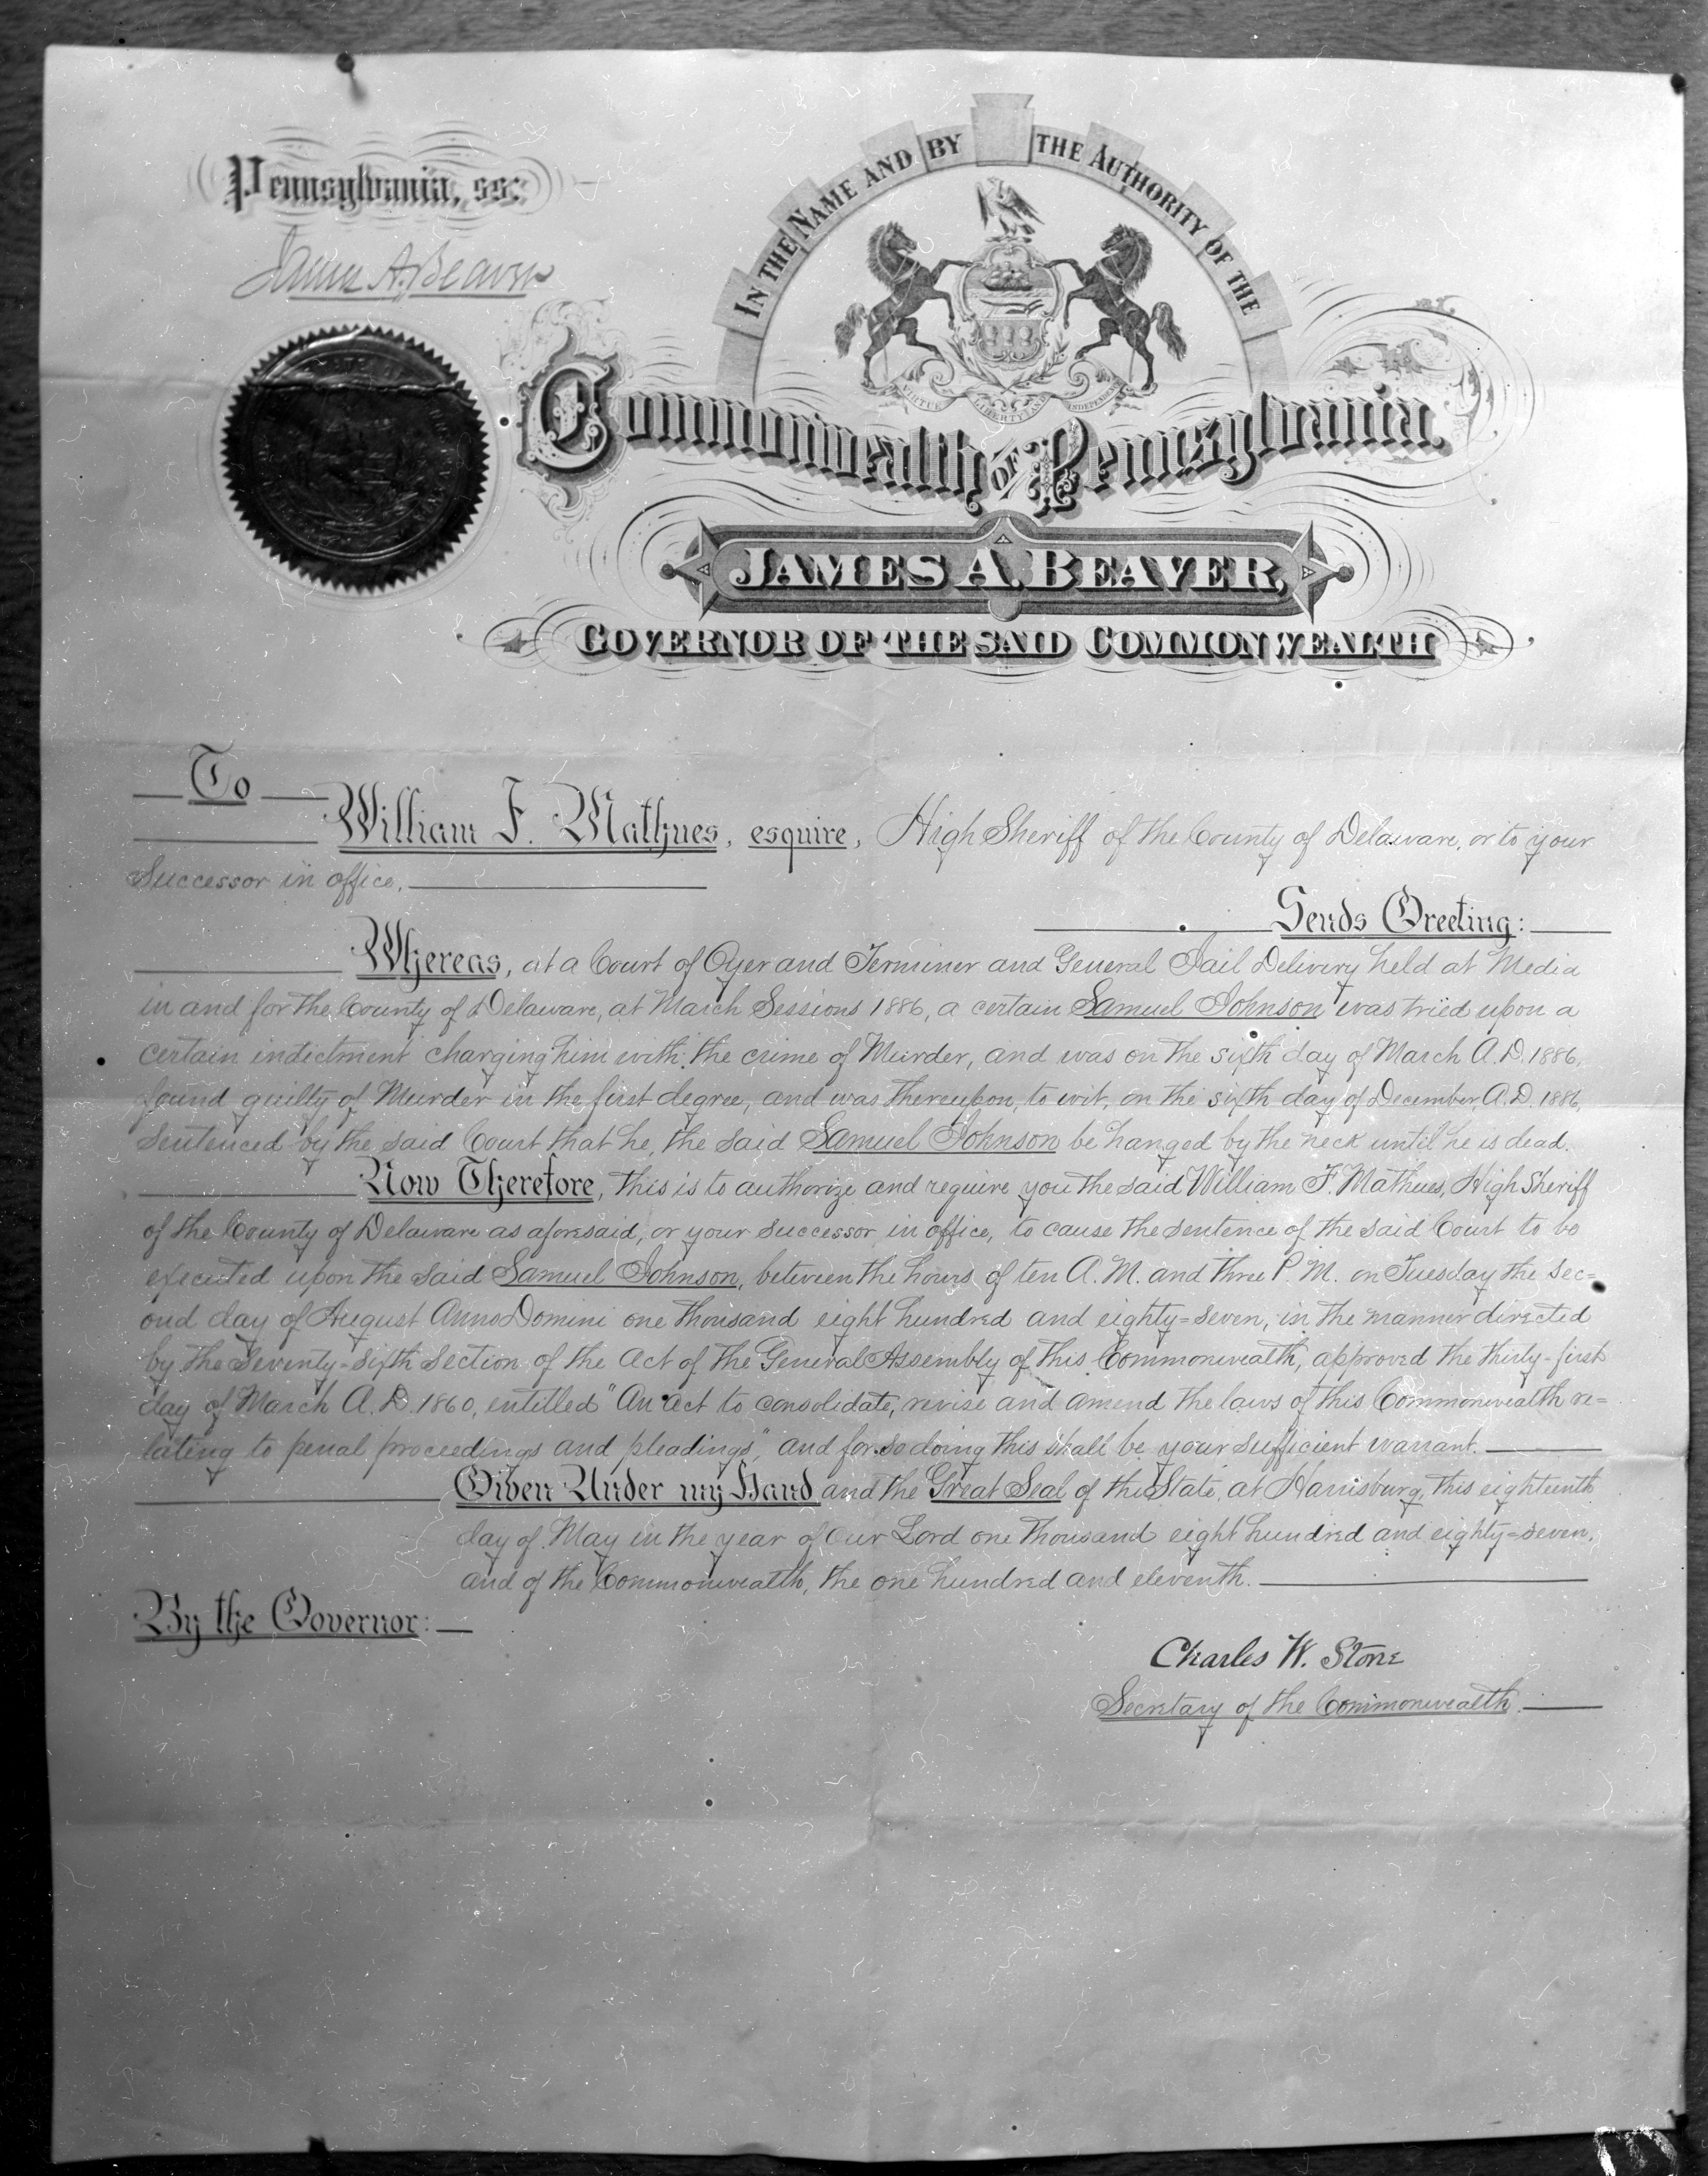 Pennsylvania, ss:
James A. Beaver
IN THE NAME AND BY THE AUTHORITY OF THE
VIRTUE LIBERTY AND INDEPENDENCE
Commonwealth of Pennsylvania.
JAMES A. BEAVER,
GOVERNOR OF THE SAID COMMONWEALTH
To
William F. Mathues, esquire, High Sheriff of the County of Delaware, or to your
Successor in office,
Sends Greeting:
Whereas, at a Court of Oyer and Terminer and General Jail Delivery held at Media
in and for the County of Delaware, at March Sessions 1886, a certain Samuel Johnson was tried upon a
certain indictment charging him with the crime of Murder, and was on the sixth day of March A.D. 1886,
found guilty of Murder in the first degree, and was thereupon, to wit, on the sixth day of December, A.D. 1886,
sentenced by the said Court that he, the said Samuel Johnson be hanged by the neck until he is dead.
Now Therefore, this is to authorize and require you the said William F. Mathues, High Sheriff
of the County of Delaware as aforesaid, or your successor in office, to cause the sentence of the said Court to be
executed upon the said Samuel Johnson, between the hours of ten A.M. and three P.M. on Tuesday the sec=
ond day of August Anno Domini one thousand eight hundred and eighty=seven, in the manner directed
by the Seventy-sixth Section of the Act of the General Assembly of this Commonwealth, approved the thirty-first
day of March A.D. 1860, entitled "An act to consolidate, revise and amend the laws of this Commonwealth re=
lating to penal proceedings and pleadings," and for so doing this shall be your sufficient warrant.
Given Under my Hand and the Great Seal of the State, at Harrisburg, this eighteenth
day of May in the year of our Lord one thousand eight hundred and eighty=seven,
and of the Commonwealth, the one hundred and eleventh.
By the Governor:
Charles W. Stone
Secretary of the Commonwealth.